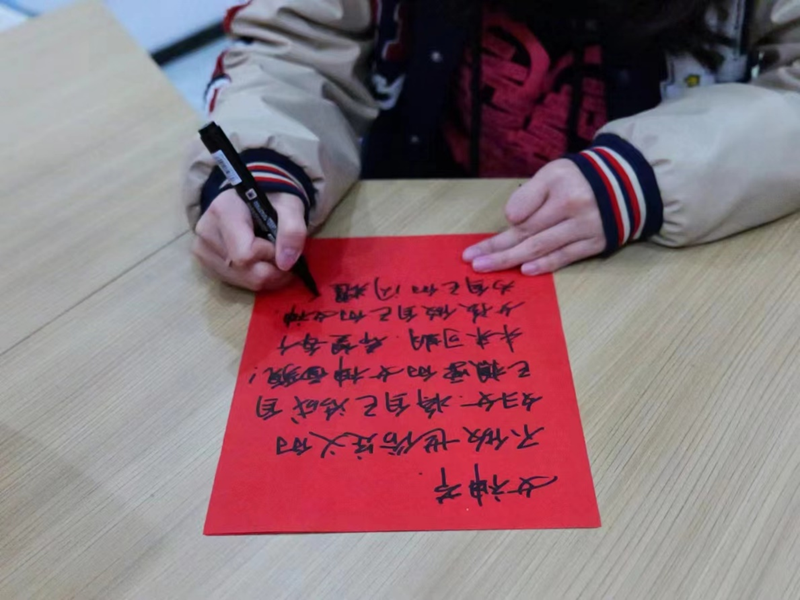 女神节
不做世俗定义的
妇女.将自己活成自
己想要的女神面貌!
未来可期.希望每个
女孩做自己的女神.
为自己的闪耀